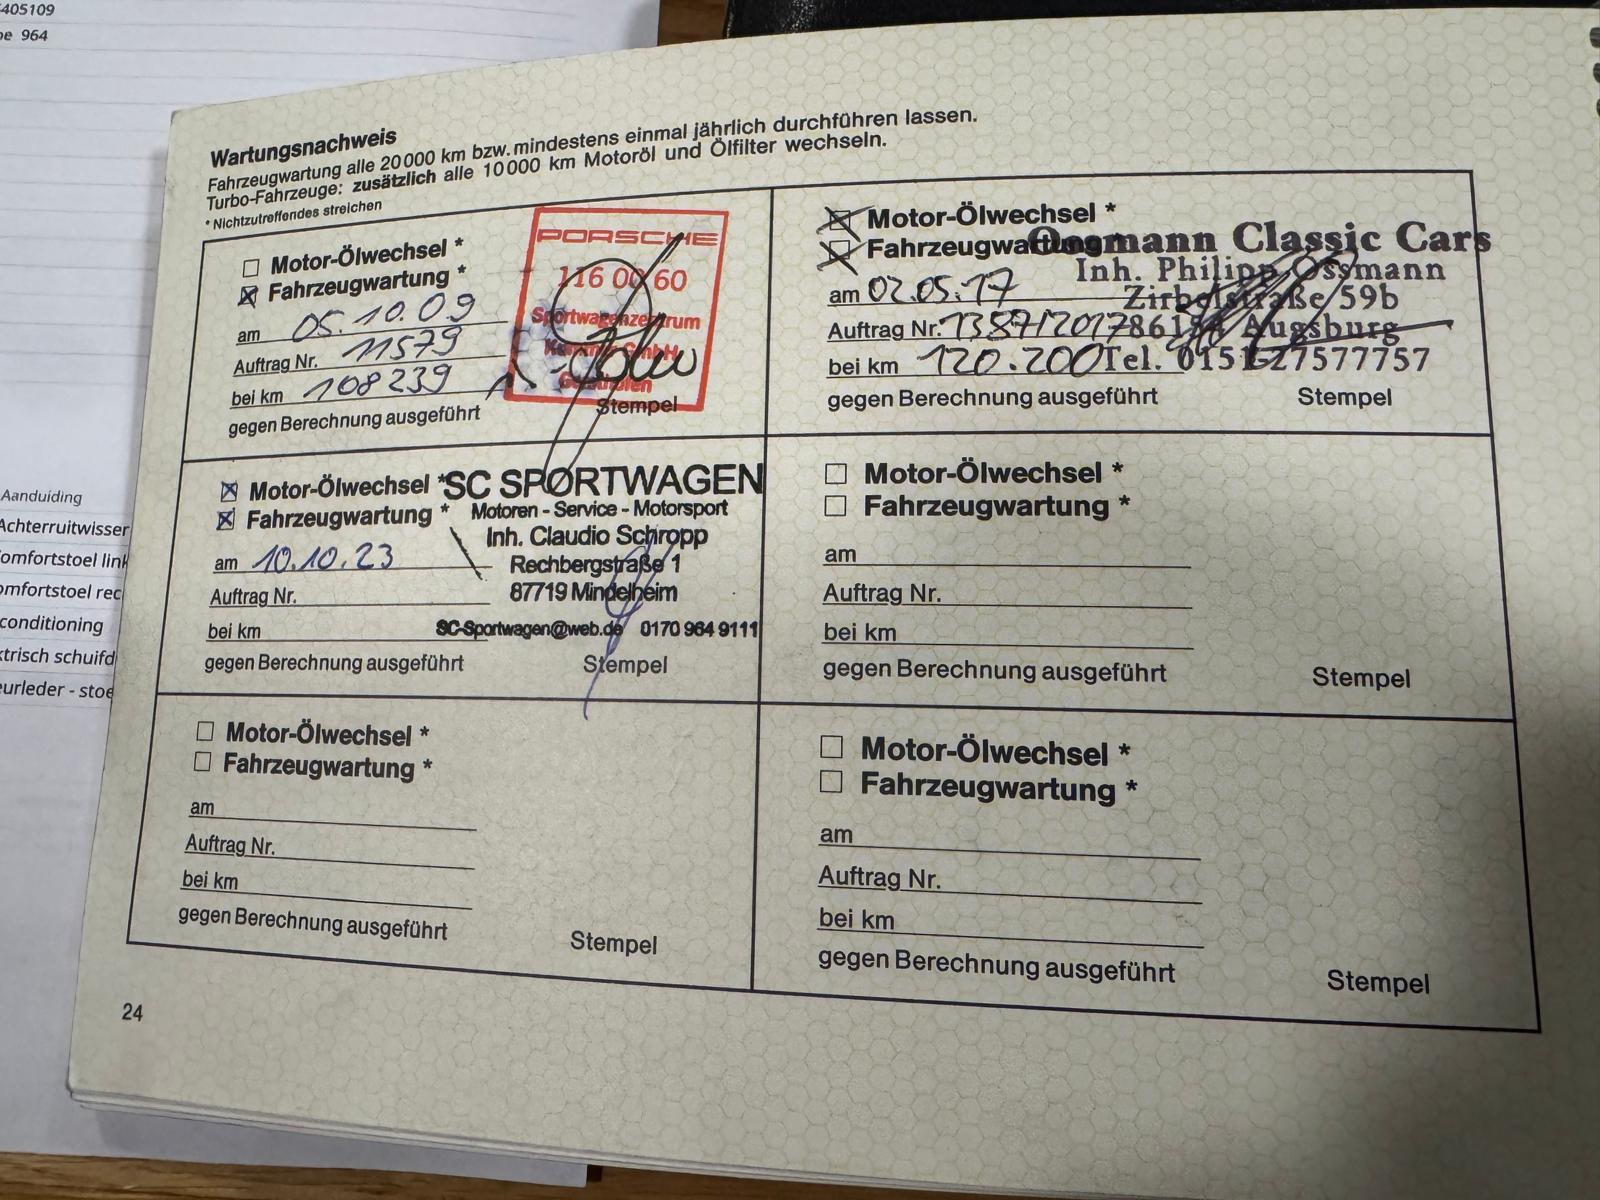 405109
964
Aanduiding
Achterruitwisser
omfortstoel link
omfortstoel rec
conditioning
ktrisch schuifd
eurleder - stoe
Wartungsnachweis
Fahrzeugwartung alle 20 000 km bzw. mindestens einmal jährlich durchführen lassen.
Turbo-Fahrzeuge: zusätzlich alle 10 000 km Motoröl und Ölfilter wechseln.
* Nichtzutreffendes streichen
Motor-Ölwechsel *
Fahrzeugwartung *
am 05.10.09
Auftrag Nr. 11579
bei km 108239
gegen Berechnung ausgeführt
PORSCHE
116 00 60
Sportwagenzentrum
GmbH
Stempel
Motor-Ölwechsel *
Fahrzeugwartung *
am 02.05.17
Auftrag Nr. 1387/2017
bei km 120.200
gegen Berechnung ausgeführt
Ossmann Classic Cars
Inh. Philipp Ossmann
Zirbelstraße 59b
Augsburg
Tel. 0151-27577757
Stempel
Motor-Ölwechsel *
Fahrzeugwartung *
am 10.10.23
Auftrag Nr.
bei km
gegen Berechnung ausgeführt
SC SPORTWAGEN
Motoren - Service - Motorsport
Inh. Claudio Schropp
Rechbergstraße 1
87719 Mindelheim
SC-Sportwagen@web.de 0170 964 9111
Stempel
Motor-Ölwechsel *
Fahrzeugwartung *
am
Auftrag Nr.
bei km
gegen Berechnung ausgeführt
Stempel
Motor-Ölwechsel *
Fahrzeugwartung *
am
Auftrag Nr.
bei km
gegen Berechnung ausgeführt
Stempel
Motor-Ölwechsel *
Fahrzeugwartung *
am
Auftrag Nr.
bei km
gegen Berechnung ausgeführt
Stempel
24